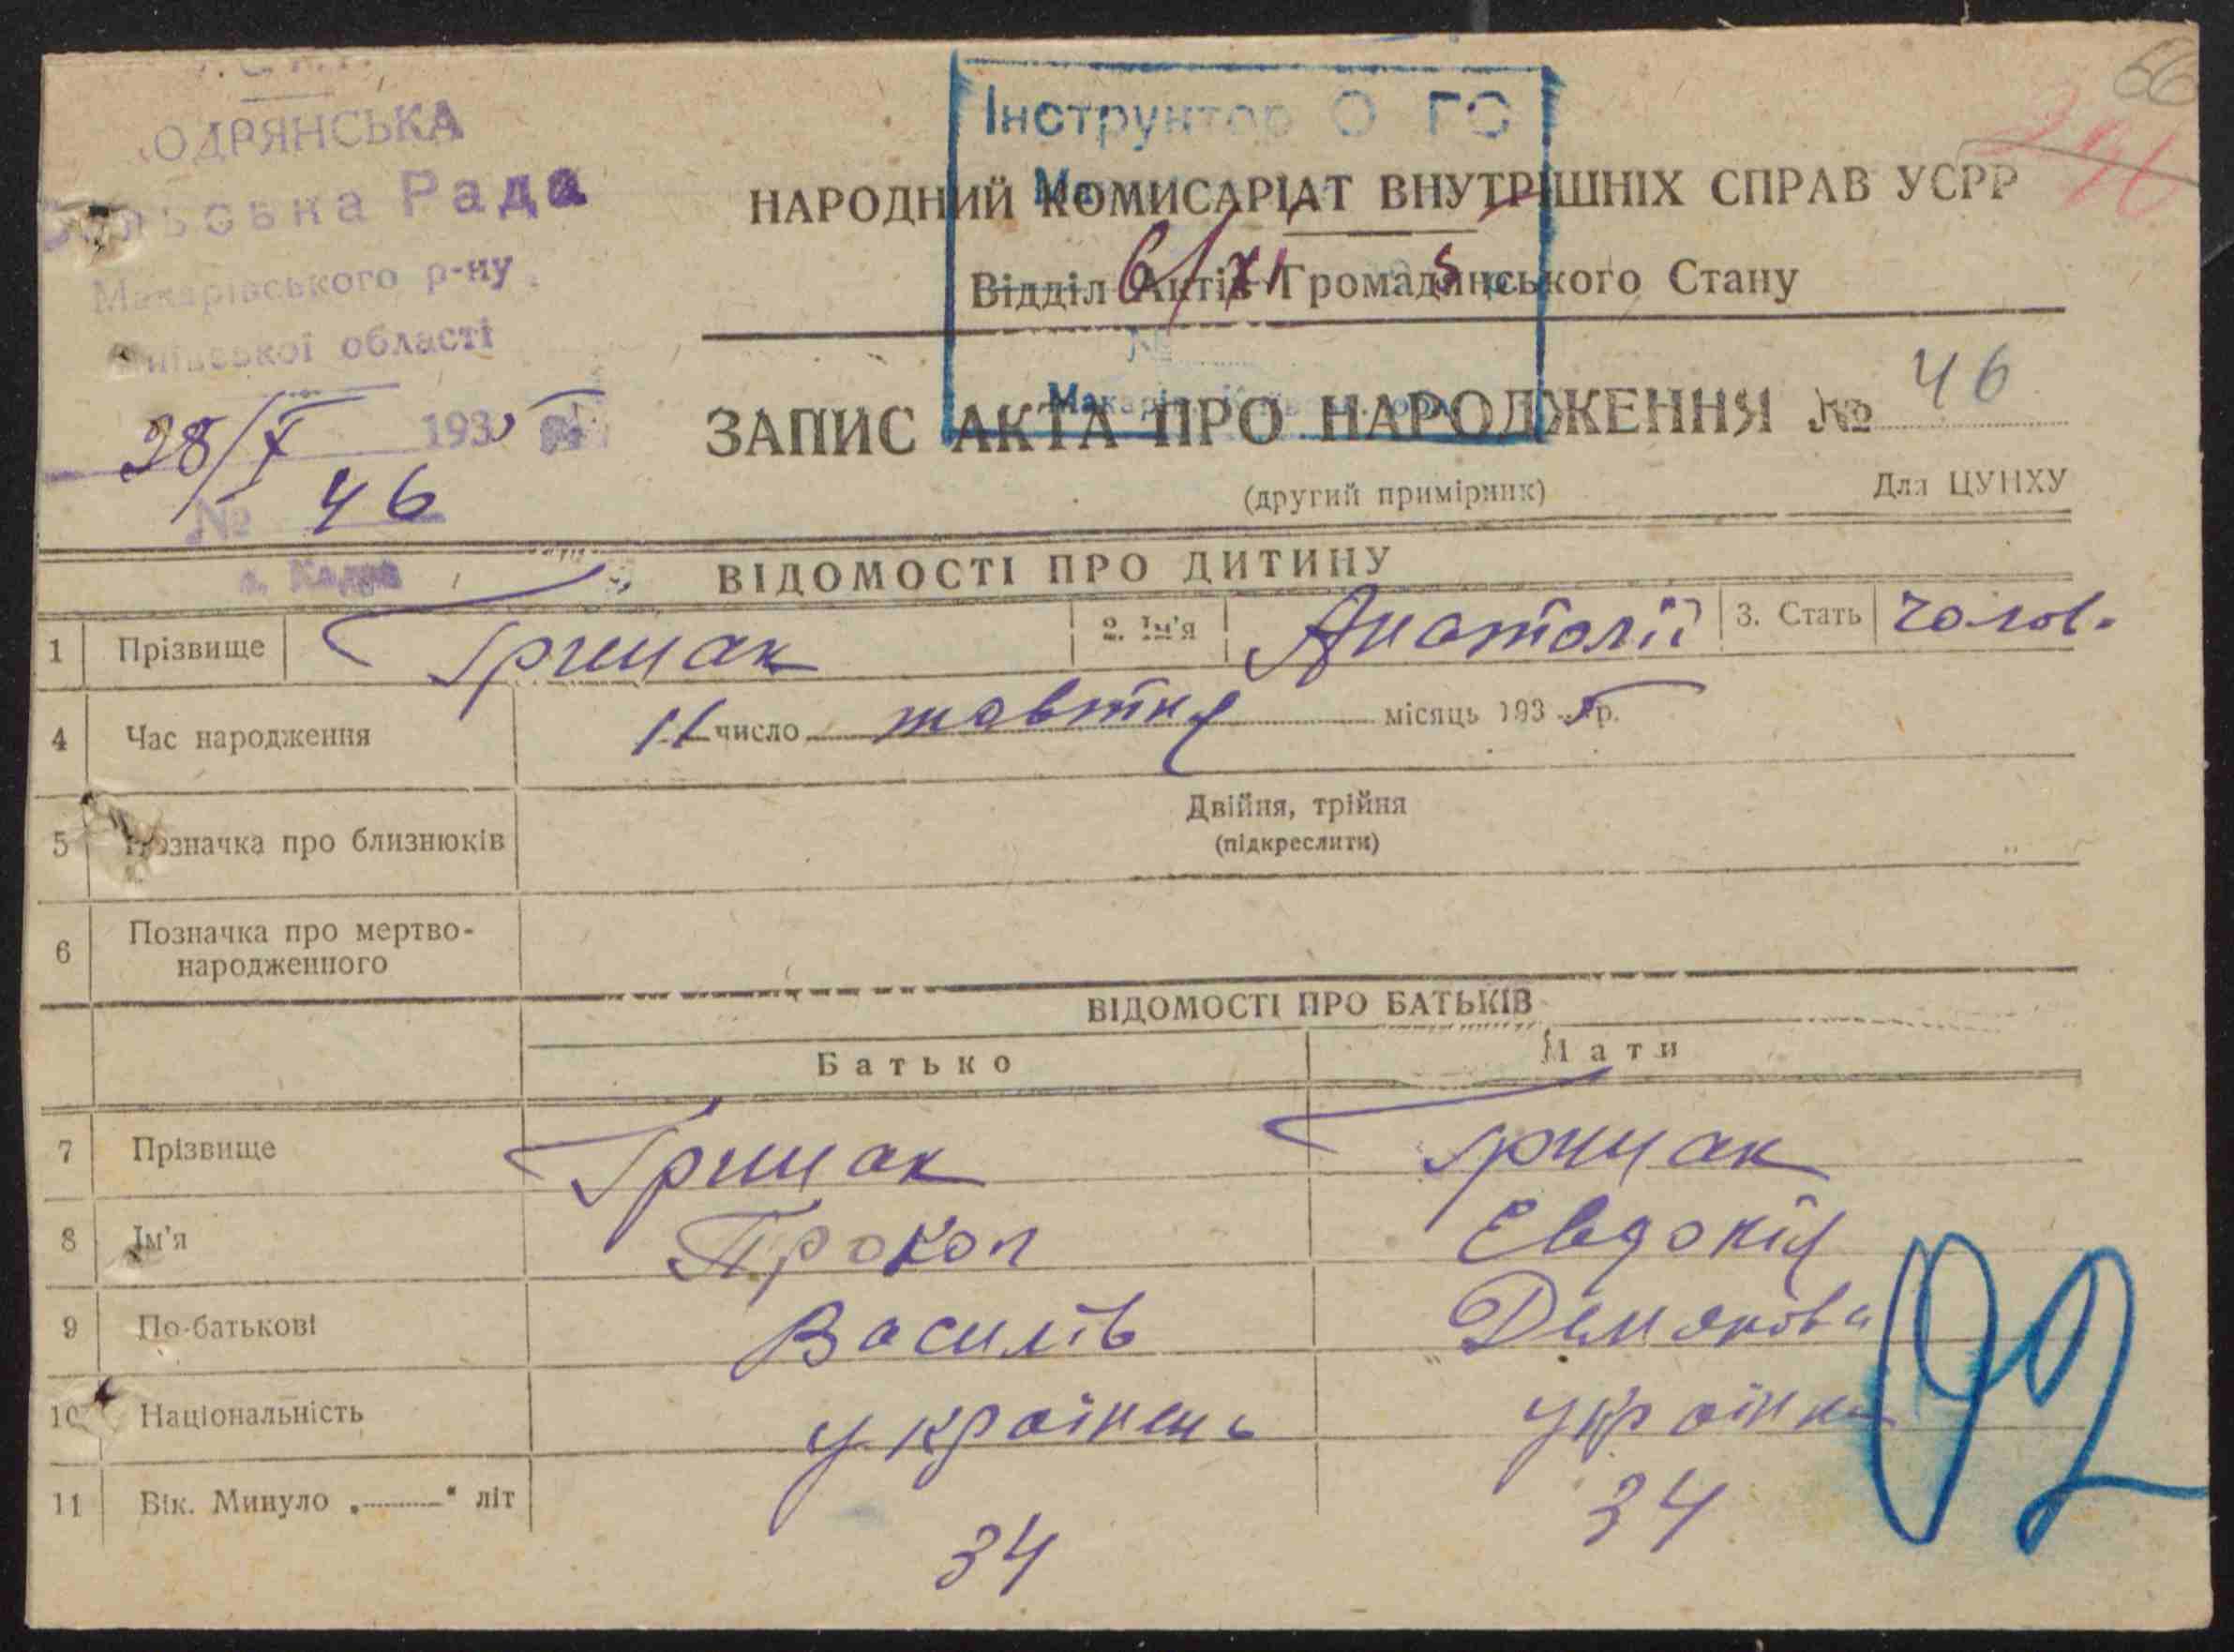 66
296
ОДРЯНСЬКА
Сільська Рада
Макарівського р-ну
Київської області
28/X 1935
№ 46
Інструктор О ГС
6/XI 5
№
НАРОДНИЙ КОМИСАРІАТ ВНУТРІШНІХ СПРАВ УСРР
Відділ Актів Громадянського Стану
ЗАПИС АКТА ПРО НАРОДЖЕННЯ № 46
(другий примірник) Для ЦУНХУ
ВІДОМОСТІ ПРО ДИТИНУ
1 Прізвище Грицак 2. Ім'я Анатолій 3. Стать чолов.
4 Час народження 11 число жовтня місяць 1935 р.
5 Позначка про близнюків Двійня, трійня
(підкреслити)
6 Позначка про мертво-
народженного
ВІДОМОСТІ ПРО БАТЬКІВ
Батько Мати
7 Прізвище Грицак Грицак
8 Ім'я Прокоп Евдокія
9 По-батькові Василів
10 Національність українець українка
11 Вік. Минуло „ “ літ 34 34
92